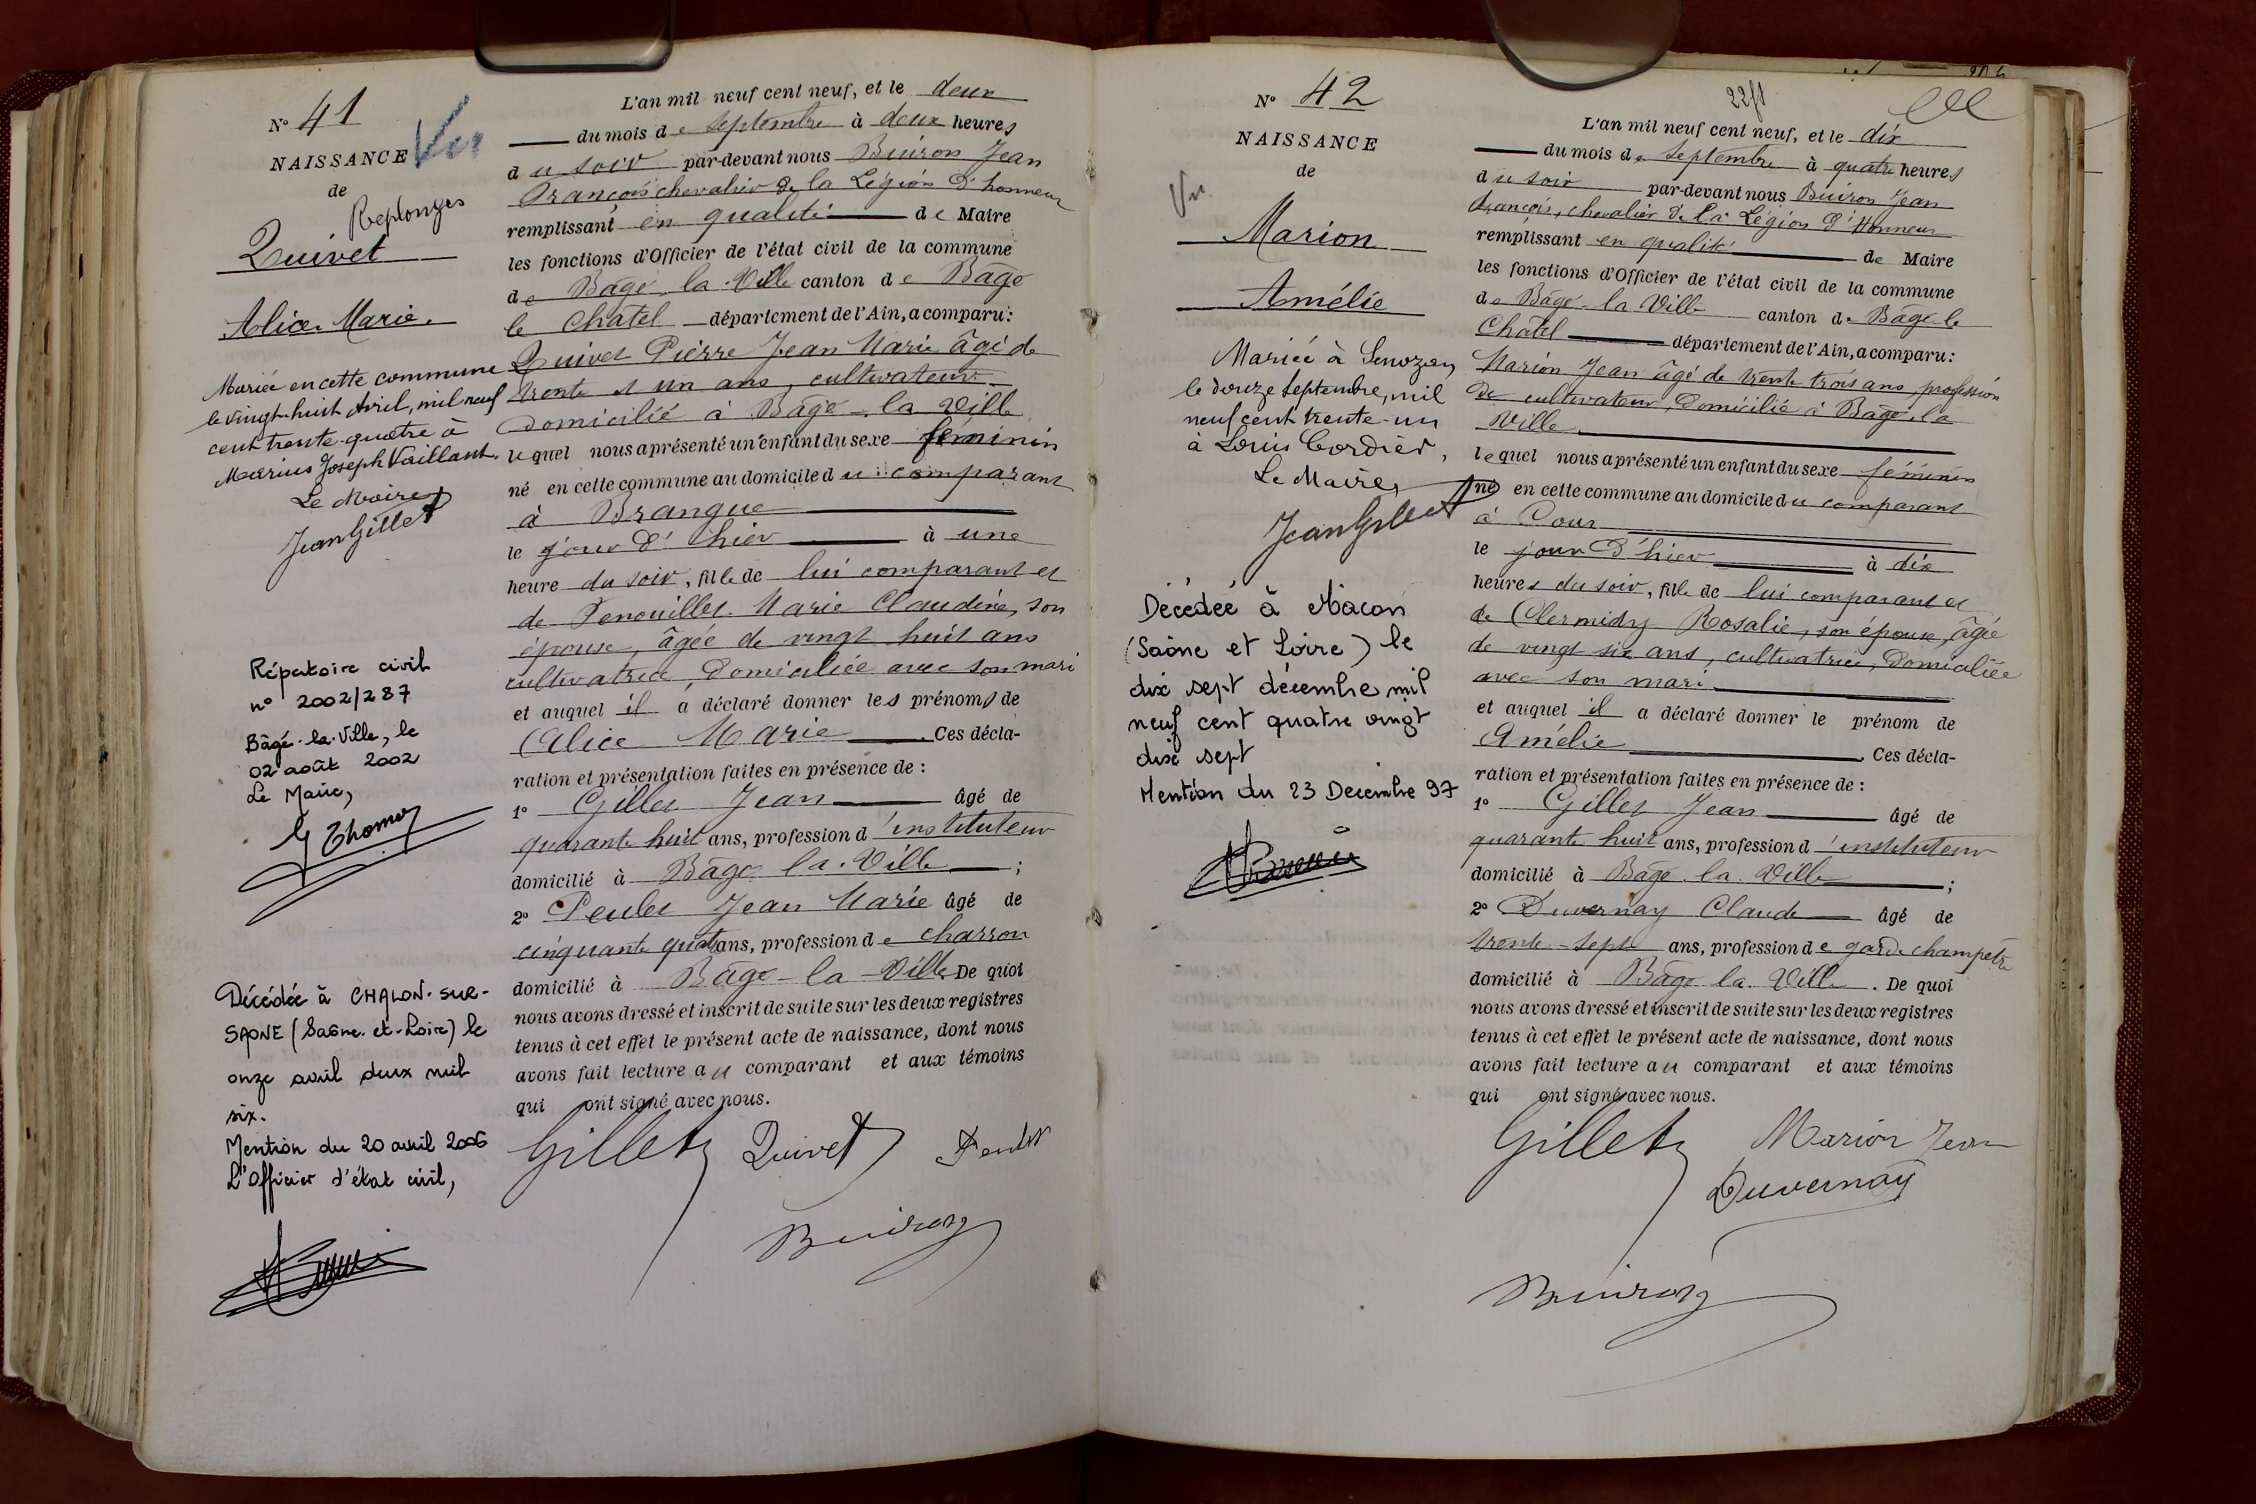 N° 41
Vu
NAISSANCE
de
Replonges
Quivet
Alice Marie.
Mariée en cette commune
le vingt-huit Avril, mil neuf
cent trente-quatre à
Marius Joseph Vaillant.
Le Maire,
Jean Gillet
Répertoire civil
n° 2002/287
Bâgé-la-Ville, le
02 août 2002
Le Maire,
Décédée à CHALON-SUR-
SAONE (Saône-et-Loire) le
onze avril deux mil
six.
Mention du 20 avril 2006
L'Officier d'état civil,
L'an mil neuf cent neuf, et le deux
du mois de septembre à deux heures
du soir par-devant nous Buiron Jean
François chevalier de la Légion d'honneur
remplissant en qualité de Maire
les fonctions d'Officier de l'état civil de la commune
de Bâgé-la-Ville canton de Bâgé
le Châtel département de l'Ain, a comparu:
Quivet Pierre Jean Marie âgé de
trente et un ans, cultivateur
domicilié à Bâgé-la Ville
lequel nous a présenté un enfant du sexe féminin
né en cette commune au domicile du comparant
à Brangue
le jour d'hier à une
heure du soir, fille de lui comparant et
de Penouillet Marie Claudine, son
épouse, âgée de vingt huit ans
cultivatrice, domiciliée avec son mari
et auquel il a déclaré donner les prénoms de
Alice Marie . Ces décla-
ration et présentation faites en présence de :
1° Gillet Jean âgé de
quarante huit ans, profession d'instituteur
domicilié à Bâgé la-Ville ;
2° Peulet Jean Marie âgé de
cinquante quatre ans, profession de charron
domicilié à Bâgé-la-Ville De quoi
nous avons dressé et inscrit de suite sur les deux registres
tenus à cet effet le présent acte de naissance, dont nous
avons fait lecture au comparant et aux témoins
qui ont signé avec nous.
Gillet Quivet Peulet
Buiron
N° 42
NAISSANCE
de
Vu.
Marion
Amélie
Mariée à Senozan
le douze septembre, mil
neuf cent trente-un
à Louis Cordier,
Le Maire,
Jean Gillet
Décédée à Macon
(Saône et Loire) le
dix sept décembre mil
neuf cent quatre vingt
dix sept
Mention du 23 Decembre 97
L'an mil neuf cent neuf, et le dix
du mois de septembre à quatre heures
du soir par-devant nous Buiron Jean
François, chevalier de la Légion d'Honneur
remplissant en qualité de Maire
les fonctions d'Officier de l'état civil de la commune
de Bâgé-la Ville canton de Bâgé-le
Châtel département de l'Ain, a comparu:
Marion Jean âgé de trente trois ans, profession
de cultivateur, domicilié à Bâgé-la
Ville
lequel nous a présenté un enfant du sexe féminin
né en cette commune au domicile du comparant
à
le jour d'hier à dix
heures du soir, fille de lui comparant et
de Clermidy Rosalie, son épouse, âgée
de vingt six ans, cultivatrice, domiciliée
avec son mari
et auquel il a déclaré donner le prénom de
Amélie . Ces décla-
ration et présentation faites en présence de :
1° Gillet Jean âgé de
quarante huit ans, profession d'instituteur
domicilié à Bâgé-la-Ville ;
2° Duvernay Claude âgé de
trente-sept ans, profession de garde champêtre
domicilié à Bâgé la Ville . De quoi
nous avons dressé et inscrit de suite sur les deux registres
tenus à cet effet le présent acte de naissance, dont nous
avons fait lecture au comparant et aux témoins
qui ont signé avec nous.
Gillet Marion Jean
Duvernay
Buiron